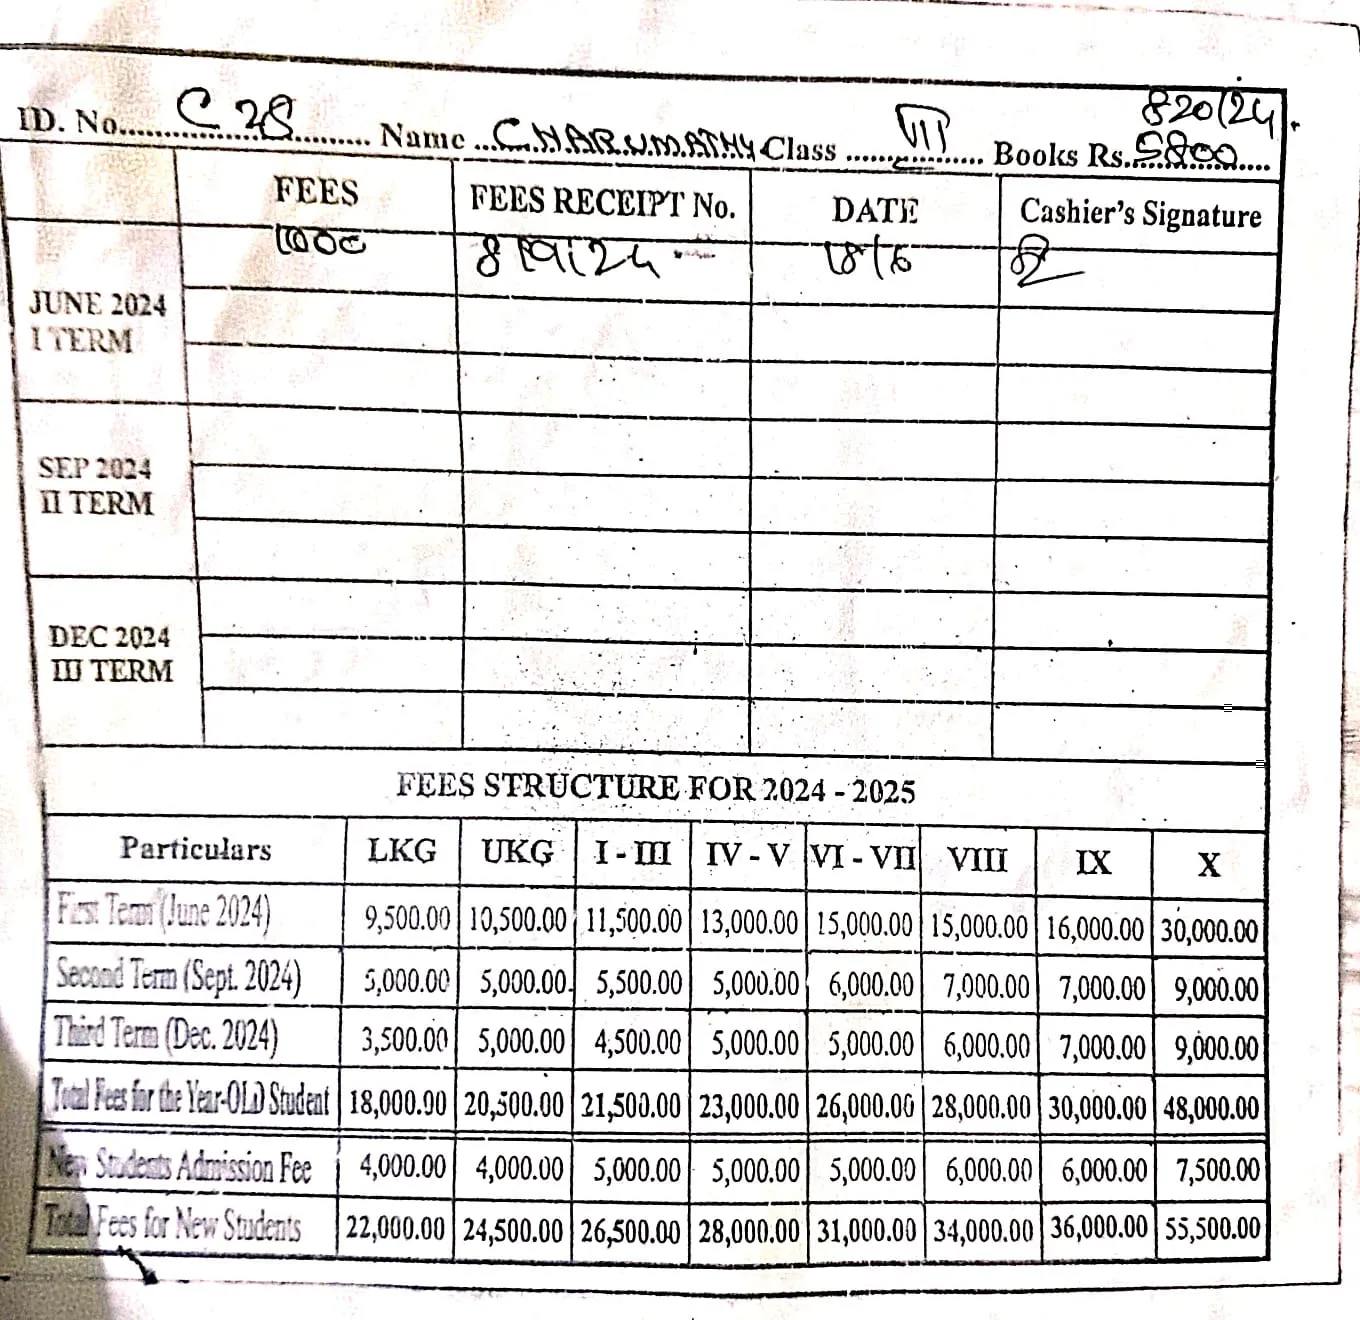 820/24.
ID. No. C 28 Name C.HARUMATHY Class VII Books Rs. 5800
FEES FEES RECEIPT No. DATE Cashier's Signature
1000 819/24 18/6
JUNE 2024
I TERM
SEP 2024
II TERM
DEC 2024
III TERM
FEES STRUCTURE FOR 2024 - 2025
Particulars LKG UKG I - III IV - V VI - VII VIII IX X
First Term (June 2024) 9,500.00 10,500.00 11,500.00 13,000.00 15,000.00 15,000.00 16,000.00 30,000.00
Second Term (Sept. 2024) 5,000.00 5,000.00 5,500.00 5,000.00 6,000.00 7,000.00 7,000.00 9,000.00
Third Term (Dec. 2024) 3,500.00 5,000.00 4,500.00 5,000.00 5,000.00 6,000.00 7,000.00 9,000.00
Total Fees for the Year-OLD Student 18,000.00 20,500.00 21,500.00 23,000.00 26,000.00 28,000.00 30,000.00 48,000.00
New Students Admission Fee 4,000.00 4,000.00 5,000.00 5,000.00 5,000.00 6,000.00 6,000.00 7,500.00
Total Fees for New Students 22,000.00 24,500.00 26,500.00 28,000.00 31,000.00 34,000.00 36,000.00 55,500.00